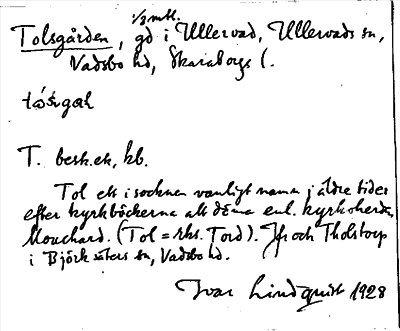 1/3 mtl.
Tolsgården, gd i Ullervad, Ullervads sn,
Vadsbo hd, Skaraborgs l.
T. besk.ek, kb.
Tol ett i socknen vanligt namn i äldre tider
efter kyrkböckerna att döma enl. kyrkoherden
Mouchard. (Tol = rks. Tord). Jfr och Tholstorp
i Björksäters sn, Vadsbo hd.
Ivar Lindquist 1928